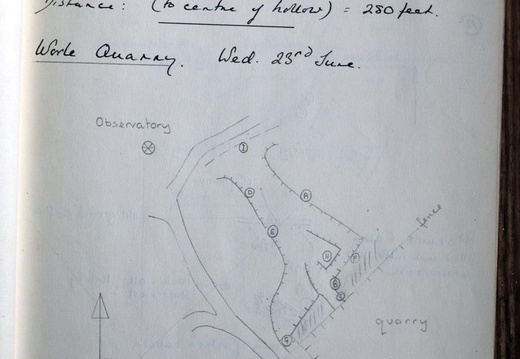 Distance: (to centre of hollow) = 280 feet.
Worle Quarry. Wed. 23rd June.
Observatory
I
D
A
E
fence
H
F
B
quarry
G